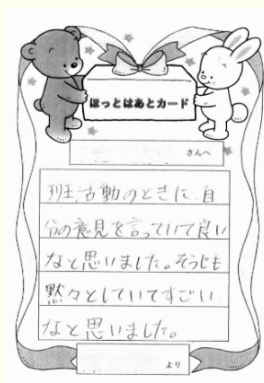 ほっとはあとカード
さんへ
班活動のときに、自
分の意見を言っていて良い
なと思いました。そうじも
黙々としていてすごい
なと思いました。
より